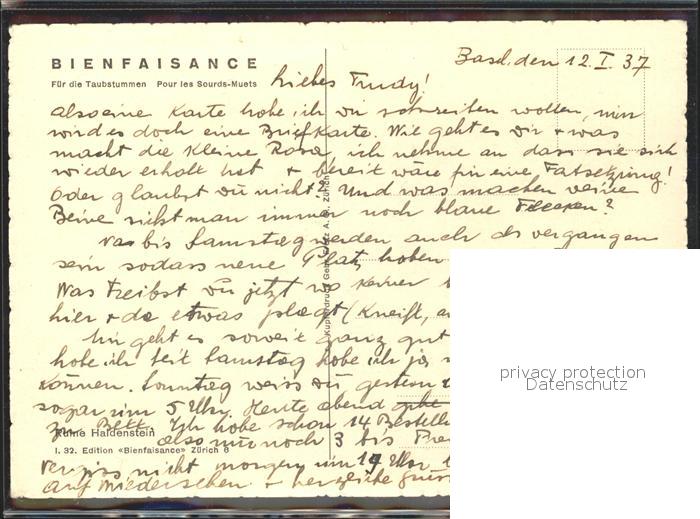 BIENFAISANCE
Für die Taubstummen Pour les Sourds-Muets
Basel, den 12. I. 37
Liebes Trudy!
also eine Karte habe ich Dir schreiben wollen, nun
wird es doch eine Briefkarte. Wie geht es Dir + was
macht die kleine Rosa, ich nehme an dass sie sich
wieder erholt hat + bereit wäre für eine Fortsetzung!
Oder glaubst Du nicht? Und was machen deine
Beine sieht man immer noch blaue Flecken?
bis Samstag werden auch die vergangen
sein sodass neue Platz haben
Was treibst Du jetzt wo keiner
hier + da etwas plagt (kneift,
Mir geht es soweit ganz gut
habe ich seit Samstag habe ich ja
können. Sonntag weiss Du gestern
sogar um 5 Uhr. Heute abend
zu Bett. Ich habe schon 14 Bestell
Ruine Haldenstein
also nur noch 3 bis
I. 32. Edition «Bienfaisance» Zürich 6
vergiss nicht morgen um 19 Uhr
auf Wiedersehen + herzliche
Kupferdruck Gebr. A. G. Zürich
privacy protection
Datenschutz